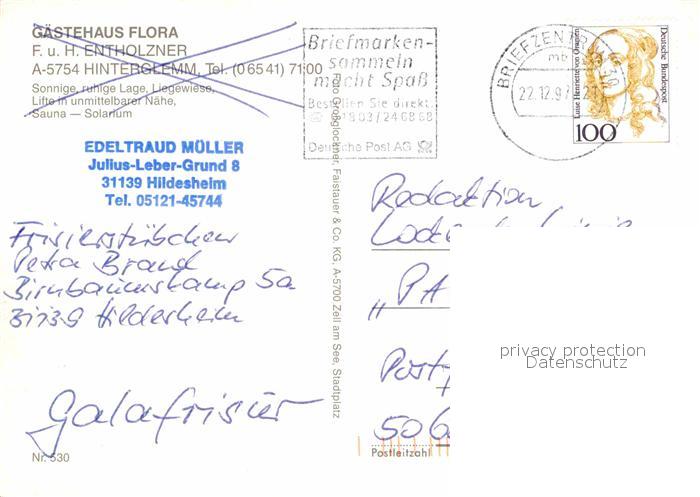 GÄSTEHAUS FLORA
F. u. H. ENTHOLZNER
A-5754 HINTERGLEMM, Tel. (0 65 41) 71 00
Sonnige, ruhige Lage, Liegewiese,
Lifte in unmittelbarer Nähe,
Sauna — Solarium
EDELTRAUD MÜLLER
Julius-Leber-Grund 8
31139 Hildesheim
Tel. 05121-45744
Frisierstübchen
Petra Brand
Birnbaumskamp 5a
31139 Hildesheim
Galafrisur
Nr. 530
Foto Großglockner, Faistauer & Co. KG, A-5700 Zell am See, Stadtplatz
Briefmarken-
sammeln
macht Spaß
Bestellen Sie direkt.
Deutsche Post AG
BRIEFZENTRUM 30
mb
22.12.97
Deutsche Bundespost
Luise Henriette von Oranien
100
Redaktion
„PA
Post
506
Postleitzahl
privacy protection
Datenschutz